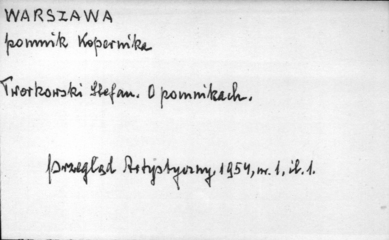 WARSZAWA
pomnik Kopernika
Tworkowski Stefan. O pomnikach.
Przegląd Artystyczny, 1954, nr. 1, il. 1.